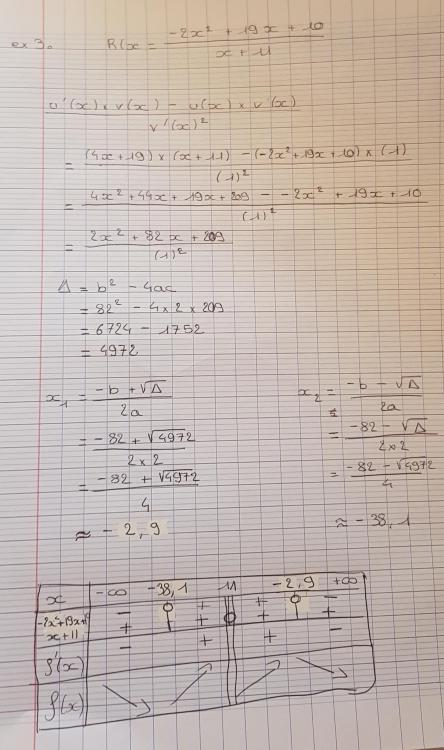 ex 3. B(x = -2x² + 19x + 10 / x + 11
u'(x) x v(x) - u(x) x v'(x) / v'(x)²
= (4x+19) x (x+11) - (-2x²+19x+10) x (1) / (1)²
= 4x² + 44x + 19x + 209 - -2x² + 19x + 10 / (1)²
= 2x² + 82x + 209 / (1)²
Δ = b² - 4ac
= 82² - 4 x 2 x 209
= 6724 - 1752
= 4972
x₁ = -b + √Δ / 2a
= -82 + √4972 / 2x2
= -82 + √4972 / 4
≈ - 2,9
x₂ = -b - √Δ / 2a
= -82 - √Δ / 2x2
= -82 - √4972 / 4
≈ - 38,1
x -∞ -38,1 11 -2,9 +∞
-2x²+19x+10 - 0 + + 0 -
x+11 + + 0 + +
f'(x) - + + -
f(x)